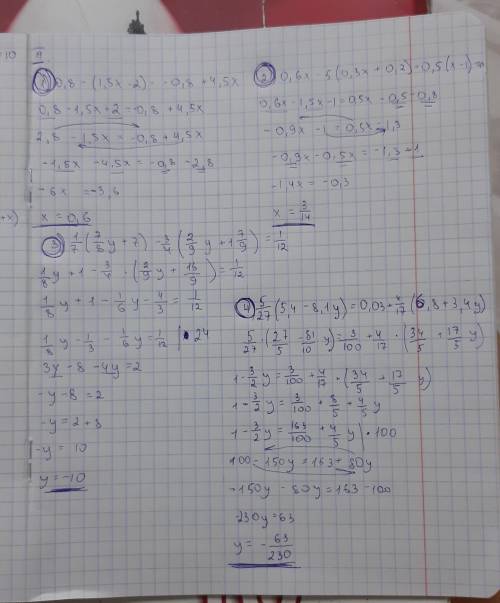 1) 0,8 - (1,5x - 2) = -0,8 + 4,5x
0,8 - 1,5x + 2 = -0,8 + 4,5x
2,8 - 1,5x = -0,8 + 4,5x
-1,5x - 4,5x = -0,8 - 2,8
-6x = -3,6
x = 0,6
2) 0,6x - 5(0,3x + 0,2) = 0,5(x - 1) -
0,6x - 1,5x - 1 = 0,5x - 0,5 - 0,8
-0,9x - 1 = 0,5x - 1,3
-0,9x - 0,5x = -1,3 + 1
-1,4x = -0,3
x = 3/14
3) 1/7 (7/8 y + 7) - 3/4 (2/9 y + 1 7/9) = 1/12
1/8 y + 1 - 3/4 · (2/9 y + 16/9) = 1/12
1/8 y + 1 - 1/6 y - 4/3 = 1/12
1/8 y - 1/3 - 1/6 y = 1/12 | · 24
3y - 8 - 4y = 2
-y - 8 = 2
-y = 2 + 8
-y = 10
y = -10
4) 5/27 (5,4 - 8,1y) = 0,03 + 4/17 (6,8 + 3,4y)
5/27 · (27/5 - 81/10 y) = 3/100 + 4/17 · (34/5 + 17/5 y)
1 - 3/2 y = 3/100 + 4/17 · (34/5 + 17/5 y)
1 - 3/2 y = 3/100 + 8/5 + 4/5 y
1 - 3/2 y = 163/100 + 4/5 y | · 100
100 - 150y = 163 + 80y
-150y - 80y = 163 - 100
-230y = 63
y = - 63/230